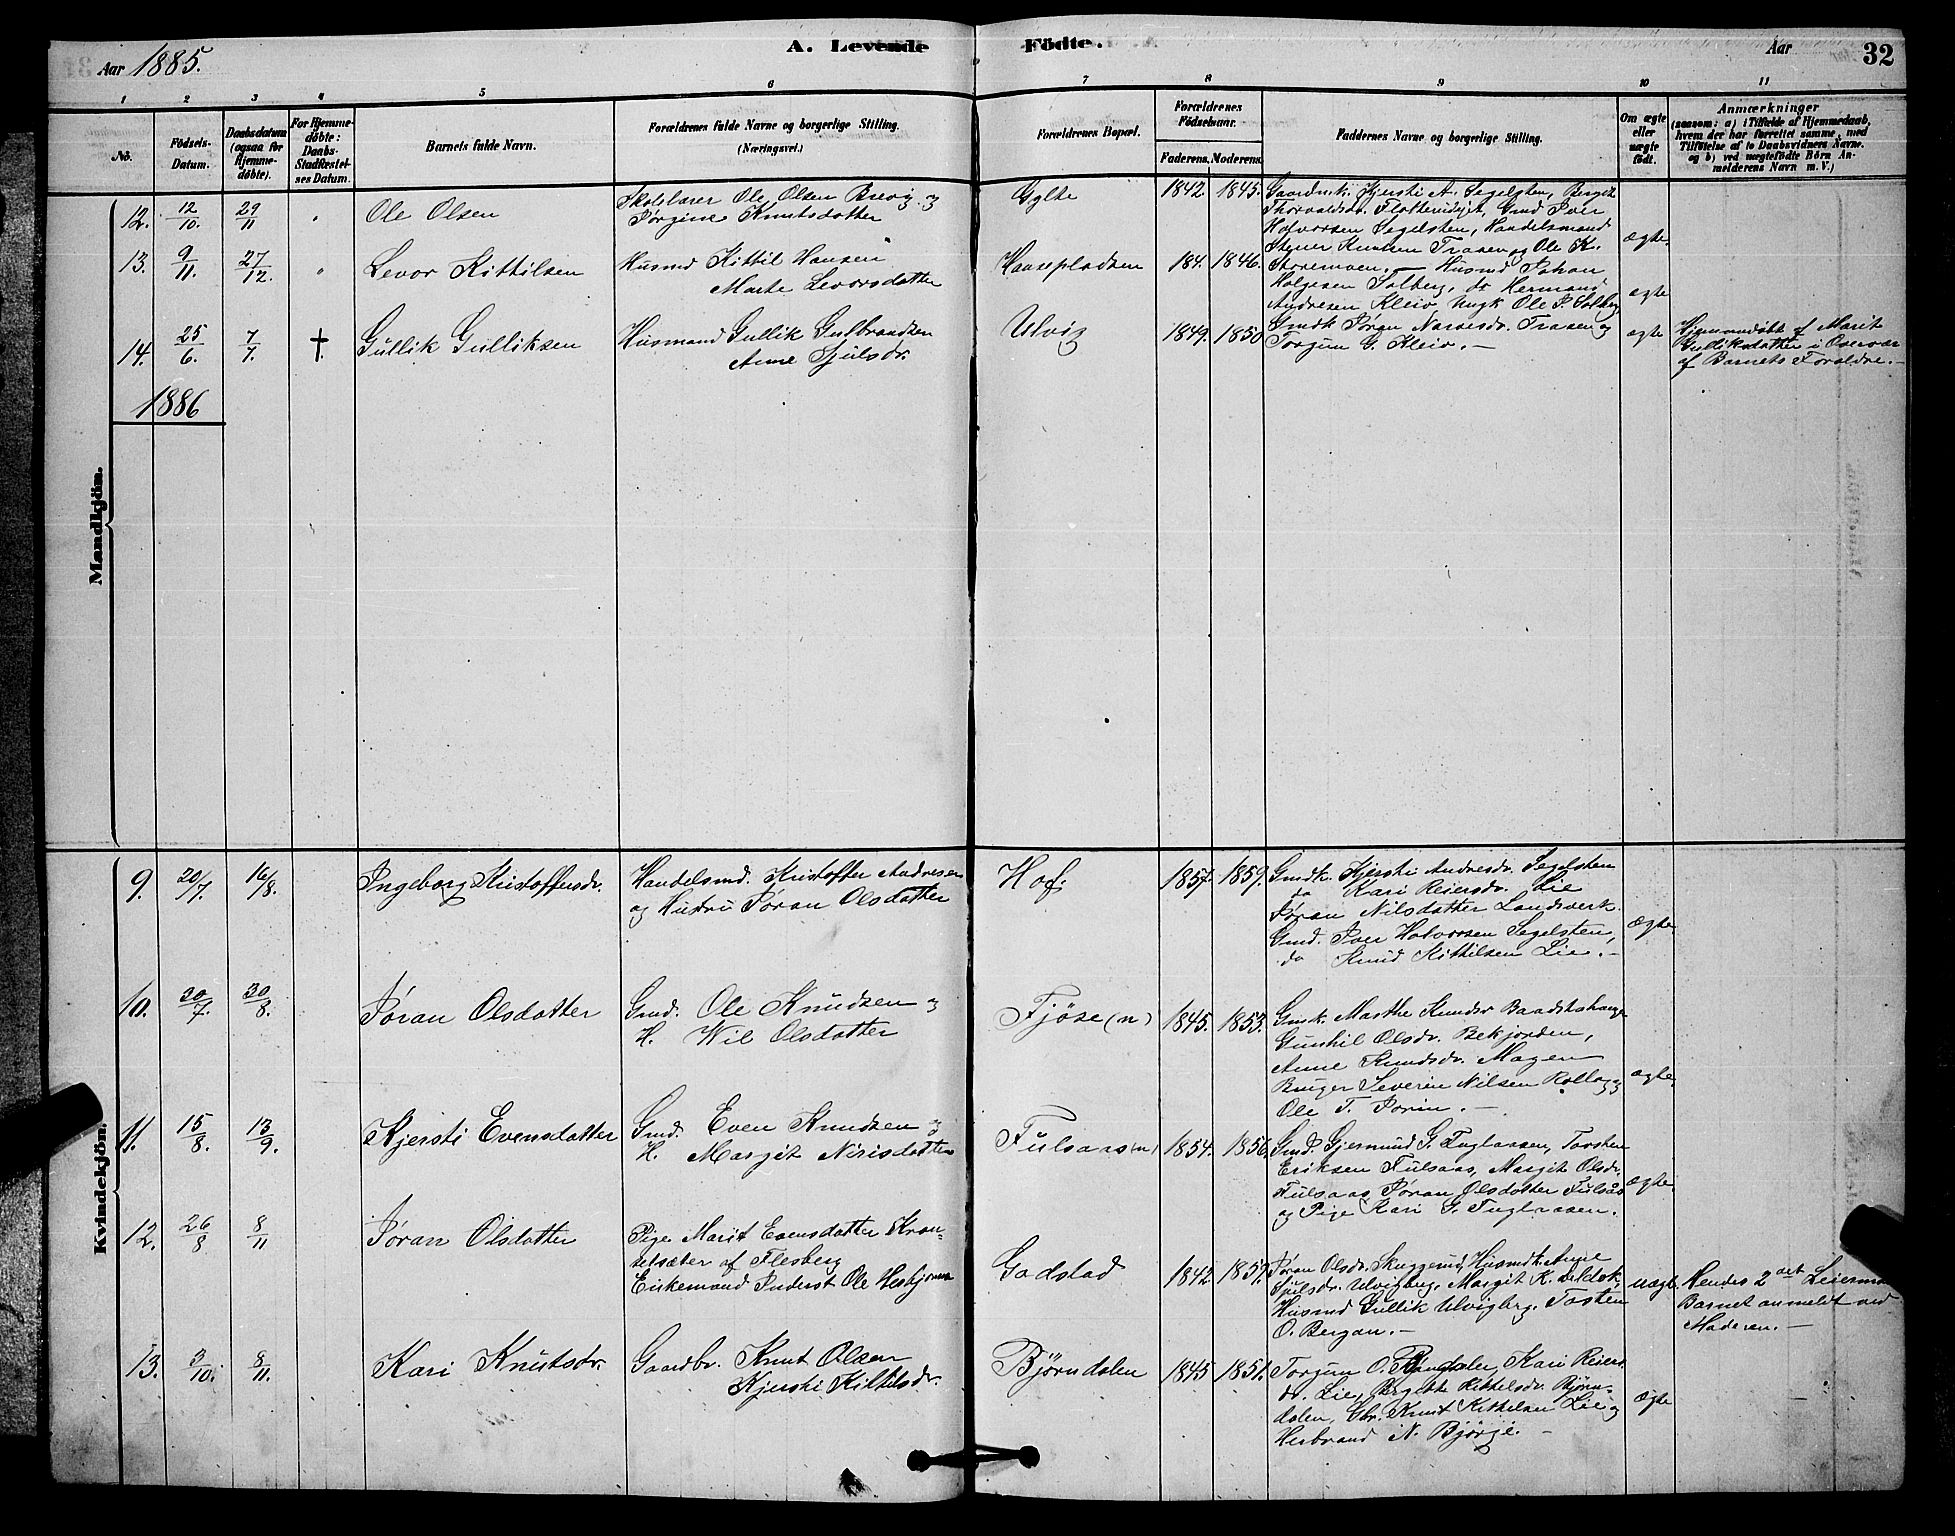 A. Levende Fødte.
Aar 1885.
Aar
32
1 2 3 4 5 6 7 8 9 10 11
No.
Födsels-Datum.
Daabsdatum (ogsaa for Hjemmedöbte).
For Hjemmedöbte: Daabs-Stadfæstelses Datum.
Barnets fulde Navn.
Forældrenes fulde Navne og borgerlige Stilling.
(Næringsvei.)
Forældrenes Bopæl.
Forældrenes Födselsaar.
Faderens. Moderens.
Faddernes Navne og borgerlige Stilling.
Om ægte eller uægte födt.
Anmærkninger
(saasom: a) i Tilfælde af Hjemmedaab, hvem der har forrettet samme, med Tilföielse af to Daabsvidners Navne. og b) ved uægtefödte Börn Anmelderens Navn m. V.)
Mandkjön.
12. 12/10. 29/11 Ole Olsen
Skolelærer Ole Olsen Brevig og
Jørgine Knutsdatter
Gylte 1842 1845.
Gaardmk. Kjersti A. Segelsten, Bergit
Thorvaldsdr. Flottervidjet, Gmd Iver
Halvorsen Segelsten, Handelsmand
Stener Knutsen Traaen og Ole K.
Storemoen.
ægte.
13. 9/11. 27/12. Levor Kittilsen
Husmd Kittil Hansen
Marte Levorsdatter
Haasepladsen 184. 1846.
Husmd Johan
Helgesen Solberg, do Hermand
Andresen Kleiv Ungk Ole P. Solberg
ægte
14. 25/6. 7/7. † Gullik Gulliksen
Husmand Gullik Gulbrandsen
Anne Sjulsdr.
Ulvig 1849. 1850
Gmdk Jøran Narvesdr. Traaen og
Torgun G. Kleiv.
ægte
Hjemmedøbt af Marit
Gulliksdatter i Overvær
af Barnets Forældre.
1886
Kvindekjön.
9. 20/7. 16/8. Ingeborg Kristoffersdr.
Handelsmd. Kristoffer Andresen
og Hustru Jøran Olsdatter
Hof. 1857. 1859.
Gmdk. Kjersti Andresdr. Segelsten
do Kari Reiersdr. Lie
Jøran Nilsdatter Landsverk.
Gmd. Iver Halvorsen Segelsten,
do Knud Kittilsen Lie.
Ægte.
10. 30/7. 30/8. Jøran Olsdatter
Gmd. Ole Knudsen og
H. Wil Olsdatter
Fjøse (n) 1845. 1853.
Gmk. Marthe Knudsr
Gunhil Olsdr. Bekjorden,
Anne Knudsdr. Mogen
Bruger Severin Nilsen Rollag og
Ole T.
ægte.
11. 15/8. 13/9. Kjersti Evensdatter
Gmd. Even Knudsen og
H. Margit Nirisdatter
Fulsaas (n) 1854. 1856.
Gmd. Gjermund G. Fuglaasen, Torsten
Eriksen Fulsaas, Margit Olsdr.
Fulsaas Jøran Olsdatter Fulsås
og Pige Kari G. Fuglaasen.
Ægte.
12. 26/8 8/11 Jøran Olsdatter
Pige Marit Evensdatter Kron-
telsæter af Flesberg
Enkemand Inderst Ole
Gadstad 1842 1857.
Jøran Olsdr. Skuggerud, Husmdk. Anne
Sjulsdr. Ulvigberg, Margit K.
Husmd Gullik Ulvigberg, Tosten
O. Bergan.
uægt.
Hendes 2det Leiermaal
Barnet anmeldt ved
Moderen.
13. 3/10. 8/11. Kari Knutsdr.
Gaardbr. Knut Olsen
Kjersti Kittilsdr.
Bjørndalen 1845 1851.
Torgun O. Kari Reiers-
dr. Lie, Bergitte Kittelsdr. Bjørn-
dalen, Gbr. Knut Kittilsen Lie og
Herbrand N. Bjørge.
Ægte